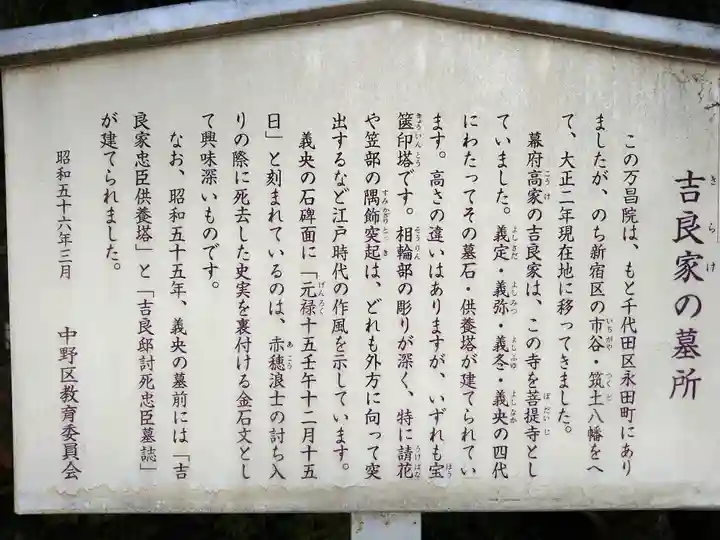 吉良家の墓所
きらけ
この万昌院は、もと千代田区永田町にあり
ましたが、のち新宿区の市谷・筑土八幡をへ
いちがや
つくど
て、大正二年現在地に移ってきました。
幕府高家の吉良家は、この寺を菩提寺とし
こうけ
ぼだいじ
ていました。義定・義弥・義冬・義央の四代
よしさだ
よしみつ
よしふゆ
よしなか
にわたってその墓石・供養塔が建てられてい
ます。高さの違いはありますが、いずれも宝
ほう
篋印塔です。相輪部の彫りが深く、特に請花
きょういんとう
そうりん
うけばな
や笠部の隅飾突起は、どれも外方に向って突
すみかざりとっき
出するなど江戸時代の作風を示しています。
義央の石碑面に「元禄十五壬午十二月十五
げんろく
日」と刻まれているのは、赤穂浪士の討ち入
あこう
りの際に死去した史実を裏付ける金石文とし
て興味深いものです。
なお、昭和五十五年、義央の墓前には「吉
良家忠臣供養塔」と「吉良邸討死忠臣墓誌」
が建てられました。
昭和五十六年三月
中野区教育委員会